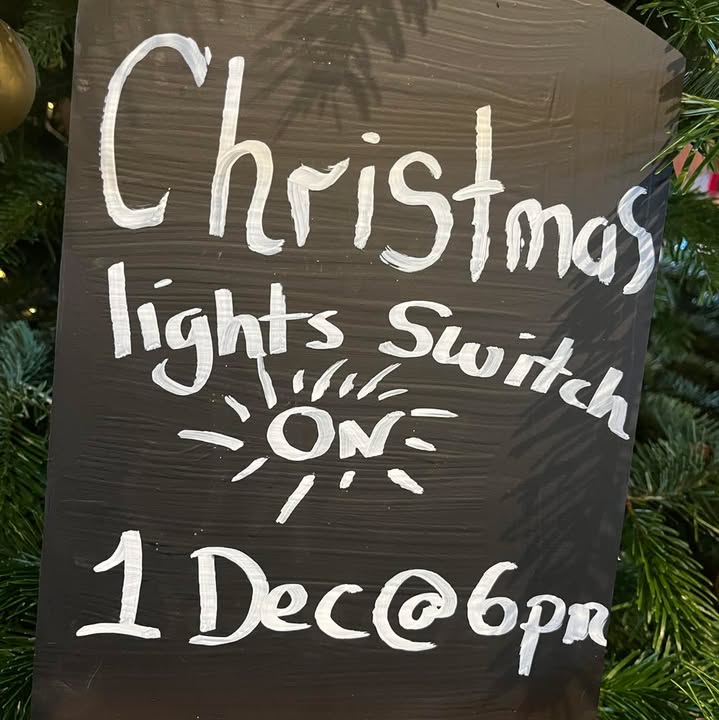 Christmas
lights Switch
ON
1 Dec@6pm